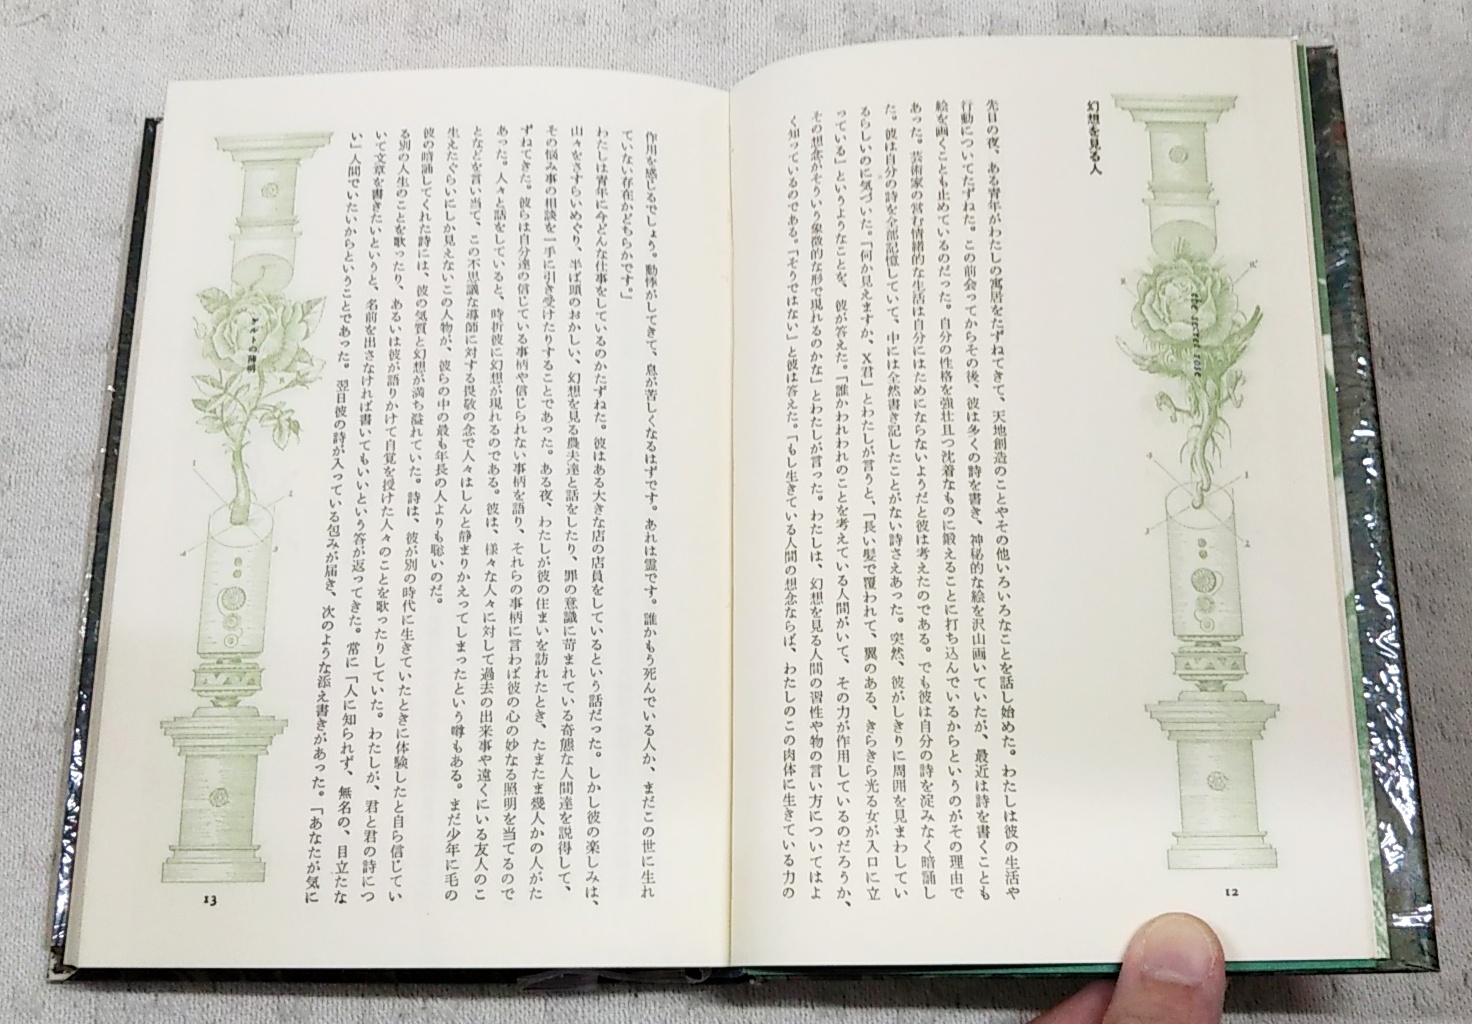 the secret rose
幻想を見る人
先日の夜、ある青年がわたしの寓居をたずねてきて、天地創造のことやその他いろいろなことを話し始めた。わたしは彼の生活や
行動についてたずねた。この前会ってからその後、彼は多くの詩を書き、神秘的な絵を沢山画いていたが、最近は詩を書くことも
絵を画くことも止めているのだった。自分の性格を強壮且つ沈着なものに鍛えることに打ち込んでいるからというのがその理由で
あった。芸術家の営む情緒的な生活は自分にはためにならないようだと彼は考えたのである。でも彼は自分の詩を淀みなく暗誦し
た。彼は自分の詩を全部記憶していて、中には全然書き記したことがない詩さえあった。突然、彼がしきりに周囲を見まわしてい
るらしいのに気づいた。「何か見えますか、X君」とわたしが言うと、「長い髪で覆われて、翼のある、きらきら光る女が入口に立
っている」というようなことを、彼が答えた。「誰かわれわれのことを考えている人間がいて、その力が作用しているのだろうか、
その想念がそういう象徴的な形で現れるのかな」とわたしが言った。わたしは、幻想を見る人間の習性や物の言い方についてはよ
く知っているのである。「そうではない」と彼は答えた。「もし生きている人間の想念ならば、わたしのこの肉体に生きている力の
12
作用を感じるでしょう。動悸がしてきて、息が苦しくなるはずです。あれは霊です。誰かもう死んでいる人か、まだこの世に生れ
ていない存在かどちらかです。」
わたしは青年に今どんな仕事をしているのかたずねた。彼はある大きな店の店員をしているという話だった。しかし彼の楽しみは、
山々をさすらいめぐり、半ば頭のおかしい、幻想を見る農夫達と話をしたり、罪の意識に苛まれている奇態な人間達を説得して、
その悩み事の相談を一手に引き受けたりすることであった。ある夜、わたしが彼の住まいを訪れたとき、たまたま幾人かの人がた
ずねてきた。彼らは自分達の信じている事柄や信じられない事柄を語り、それらの事柄に言わば彼の心の妙なる照明を当てるので
あった。人々と話をしていると、時折彼に幻想が現れるのである。彼は、様々な人々に対して過去の出来事や遠くにいる友人のこ
となどを言い当て、この不思議な導師に対する畏敬の念で人々はしんと静まりかえってしまったという噂もある。まだ少年に毛の
生えたぐらいにしか見えないこの人物が、彼らの中の最も年長の人よりも聡いのだ。
彼の暗誦してくれた詩には、彼の気質と幻想が満ち溢れていた。詩は、彼が別の時代に生きていたときに体験したと自ら信じてい
る別の人生のことを歌ったり、あるいは彼が語りかけて自覚を授けた人々のことを歌ったりしていた。わたしが、君と君の詩につ
いて文章を書きたいというと、名前を出さなければ書いてもいいという答が返ってきた。常に「人に知られず、無名の、目立たな
い」人間でいたいからということであった。翌日彼の詩が入っている包みが届き、次のような添え書きがあった。「あなたが気に
ケルトの薄明
13